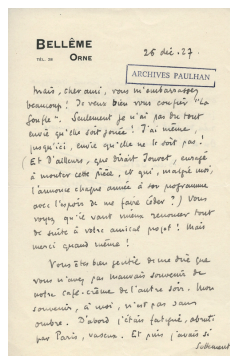 BELLÊME
TÉL. 28 ORNE
26 déc. 27.
ARCHIVES PAULHAN
Mais, cher ami, vous m'embarrassez
beaucoup ! Je veux bien vous confier "La
Gonfle". Seulement je n'ai pas du tout
envie qu'elle soit jouée ! J'ai même,
jusqu'ici, envie qu'elle ne le soit pas !
(Et d'ailleurs, que dirait Jouvet, enragé
à monter cette pièce, et qui, malgré moi,
l'annonce chaque année à son programme
avec l'espoir de me faire céder ?) Vous
voyez qu'il vaut mieux renoncer tout
de suite à votre amical projet ! Mais
merci quand même !
Vous êtes bien gentil de me dire que
vous n'avez pas mauvais souvenir de
notre café-crème de l'autre soir. Mon
souvenir, à moi, n'est pas sans
ombre. D'abord j'étais fatigué, abruti
par Paris, vaseux. Et puis j'avais si
sottement